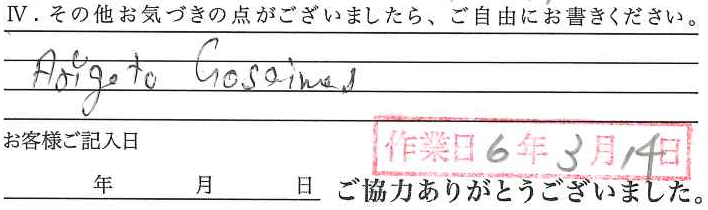 Ⅳ．その他お気づきの点がございましたら、ご自由にお書きください。
Arigato Gosaimas
お客様ご記入日
作業日 6年3月14日
年 月 日 ご協力ありがとうございました。